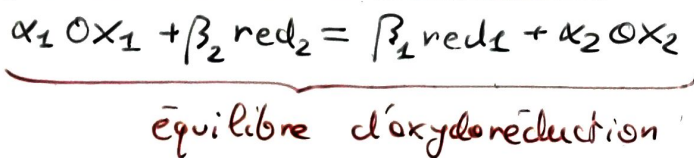 α₁ Ox₁ + β₂ red₂ = β₁ red₁ + α₂ Ox₂
équilibre d'oxydoréduction